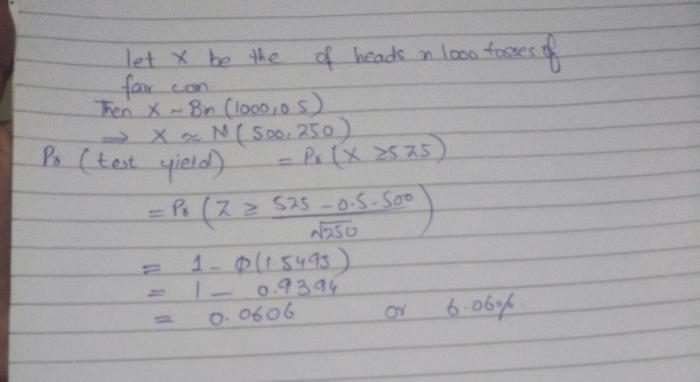 let X be the of heads n 1000 tosses of
fair con.
Then X ~ Bn (1000,0.5)
⇒ X ≈ N(500,250)
Pr (test yield) = Pr(X ≥525)
= Pr (Z ≥ (525 - 0.5 - 500)/√250)
= 1 - Φ(1.5495)
= 1 - 0.9394
= 0.0606 or 6.06%.